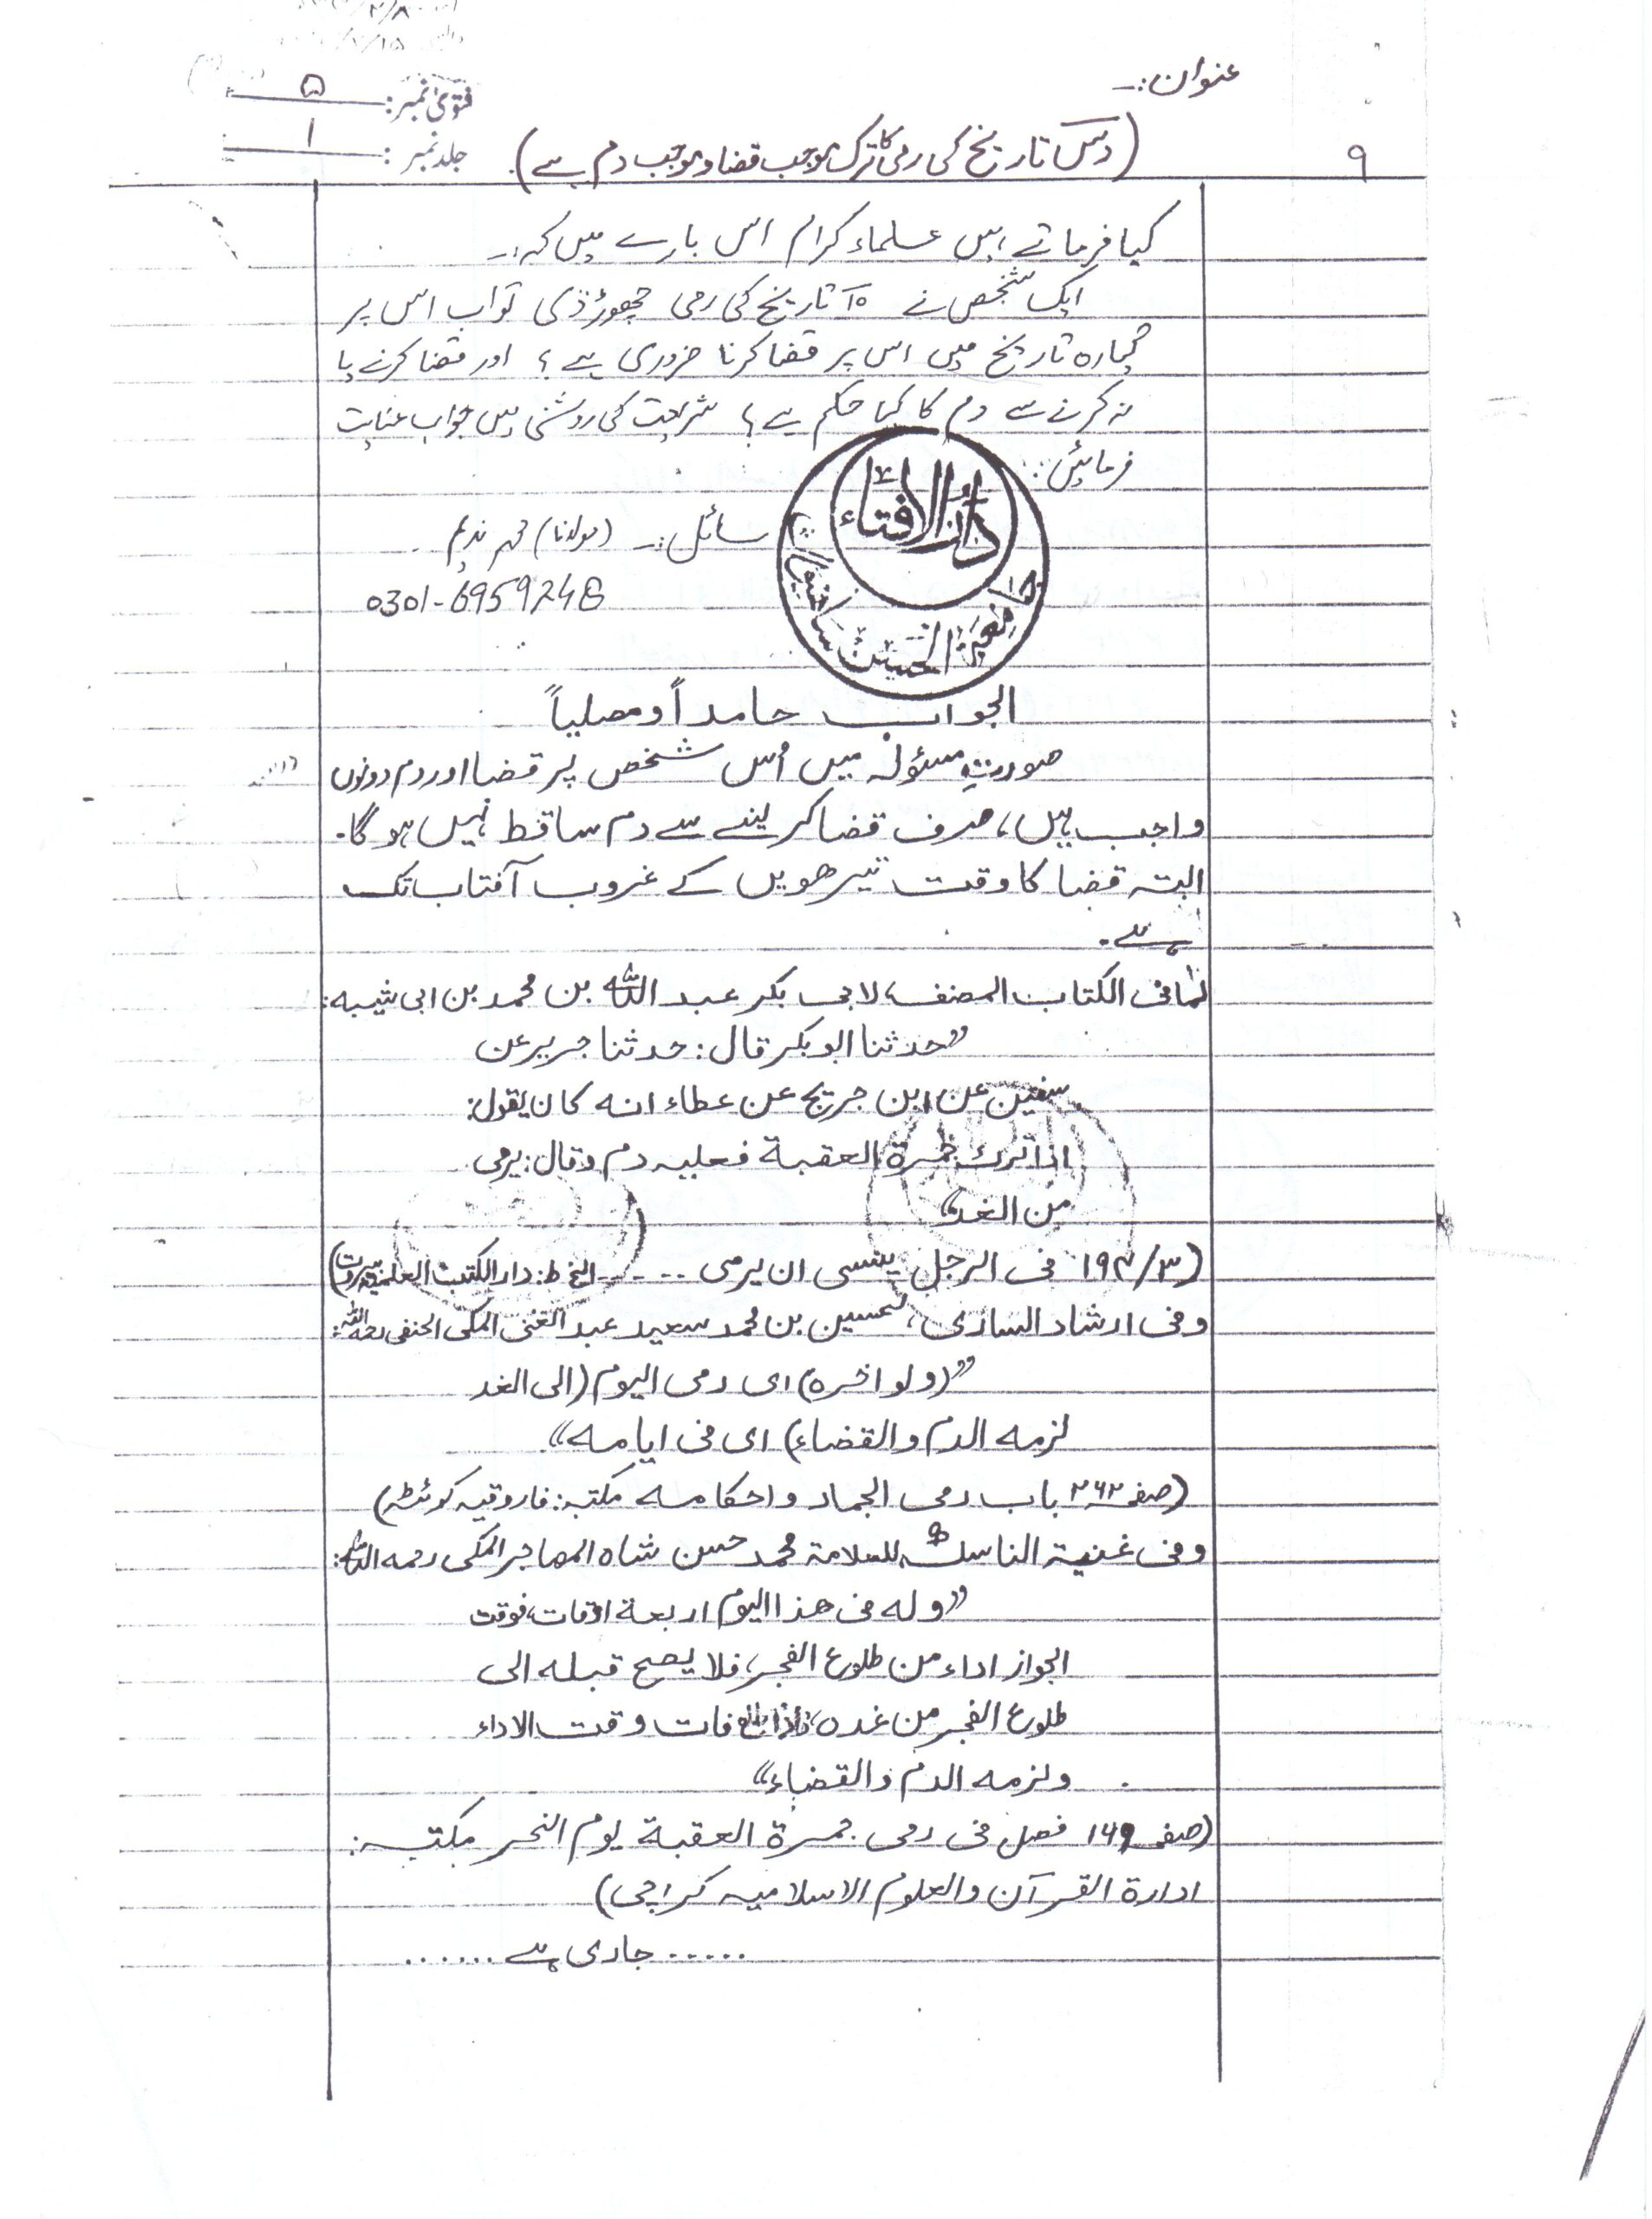 عنوان:۔
فتویٰ نمبر: ۵
جلد نمبر: ۱
۹
(دس تاریخ کی رمی کا ترک موجب قضا و موجب دم ہے)
کیا فرماتے ہیں علماء کرام اس بارے میں کہ:۔
ایک شخص نے ۱۰ تاریخ کی رمی چھوڑ دی تو اب اس پر
گیارہ تاریخ میں اس پر قضا کرنا ضروری ہے؟ اور قضا کرنے یا
نہ کرنے سے دم کا کیا حکم ہے؟ شریعت کی روشنی میں جواب عنایت
فرمائیں:
سائل:۔ (مولانا) محمد ندیم
0301-6959248
دار الافتاء
جامعۃ الحسنین ساہیوال
الجواب حامداً ومصلیاً
صورتِ مسئولہ میں اُس شخص پر قضا اور دم دونوں
واجب ہیں، صرف قضا کر لینے سے دم ساقط نہیں ہوگا۔
البتہ قضا کا وقت تیرھویں کے غروب آفتاب تک
ہے۔
لما فی الکتاب المصنف، لابی بکر عبد اللہ بن محمد بن ابی شیبہ:
”حدثنا ابوبکر قال: حدثنا جریر عن
سفین عن ابن جریج عن عطاء انہ کان یقول:
اذا ترک جمرۃ العقبۃ فعلیہ دم وقال: یرمی
من الغد“
(۳/۱۹۴ فی الرجل ینسی ان یرمی ...... الخ ط: دار الکتب العلمیہ بیروت)
وفی ارشاد الساری، لحسین بن محمد سعید عبد الغنی المکی الحنفی رحمہ اللہ:
”(ولو اخرہ) ای رمی الیوم (الی الغد
لزمہ الدم والقضاء) ای فی ایامہ“
(صفحہ ۲۶۲ باب رمی الجمار و احکامہ مکتبہ: فاروقیہ کوئٹہ)
وفی غنیۃ الناسک، للعلامۃ محمد حسن شاہ المھاجر المکی رحمہ اللہ:
”ولہ فی ھذا الیوم اربعۃ اوقات، فوقت
الجواز اداء من طلوع الفجر، فلا یصح قبلہ الی
طلوع الفجر من غدہ، فاذا طلع فات وقت الاداء
ولزمہ الدم والقضاء“
(صفحہ ۱۶۹ فصل فی رمی جمرۃ العقبۃ یوم النحر مکتبہ:
ادارۃ القرآن والعلوم الاسلامیہ کراچی)
...... جاری ہے ......